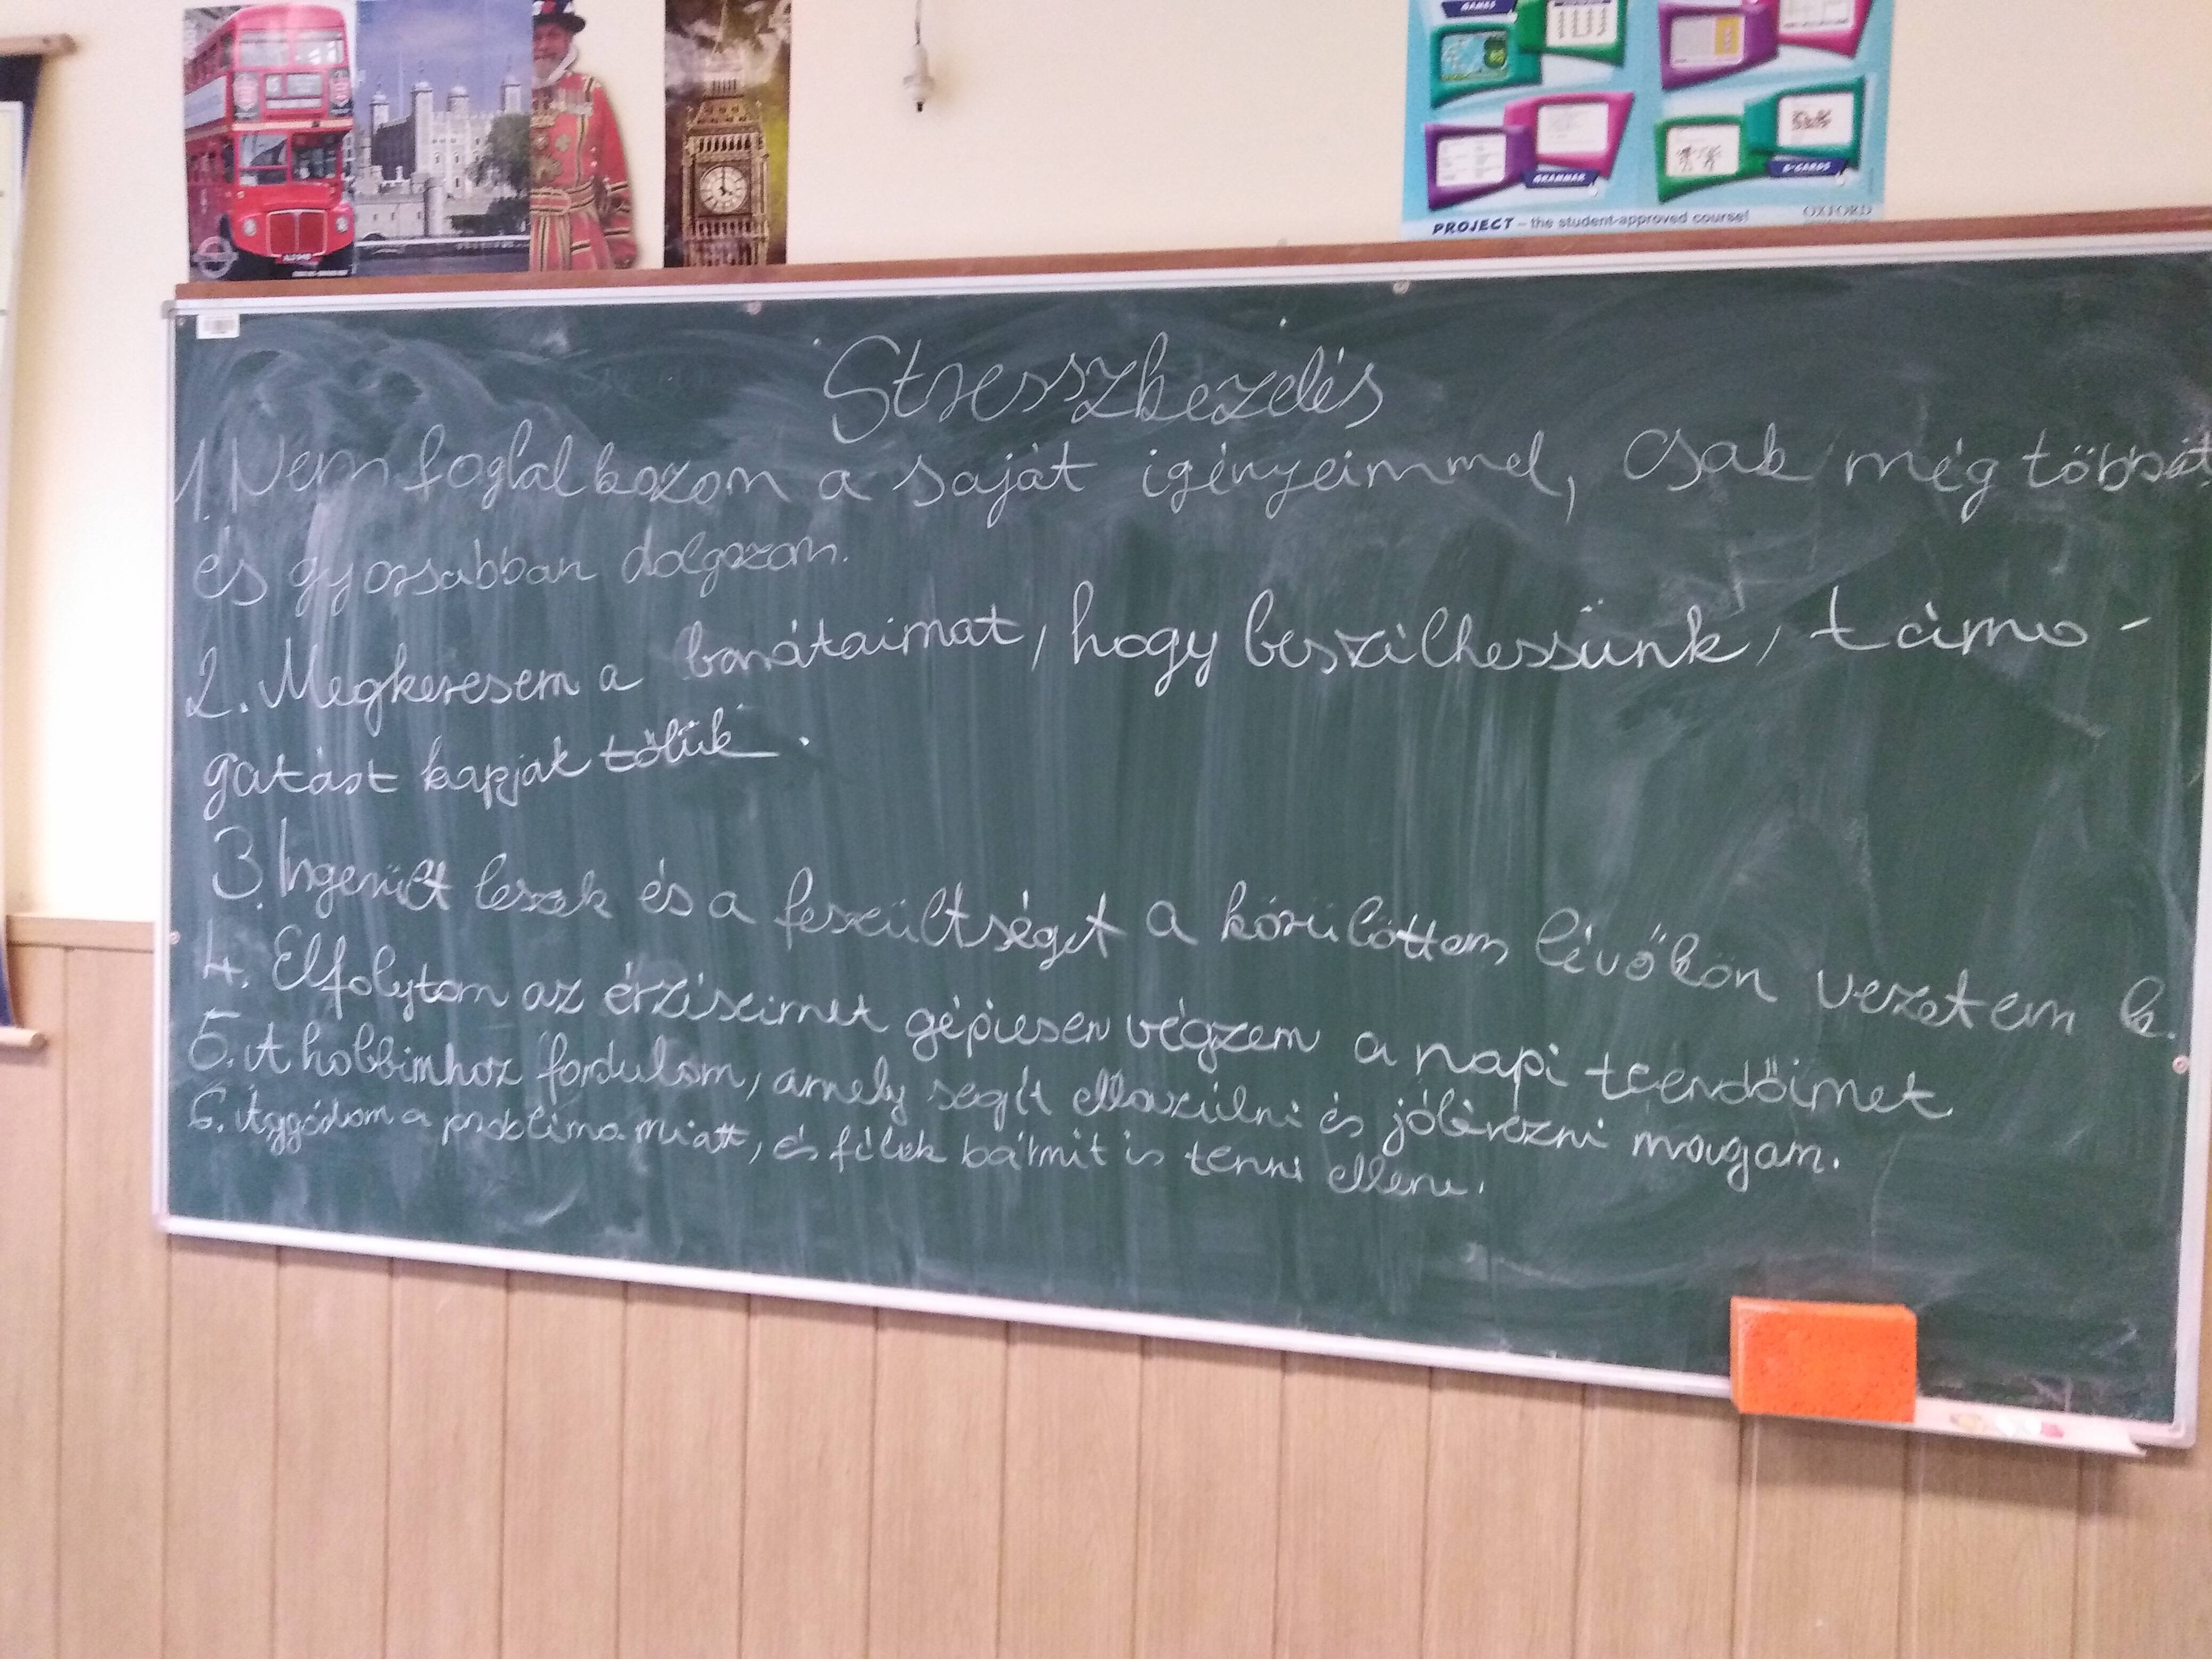 GAMES
GRAMMAR
E-CARDS
PROJECT – the student-approved course!
OXFORD
Stresszkezelés
1. Nem foglalkozom a saját igényeimmel, csak még többet
és gyorsabban dolgozom.
2. Megkeresem a barátaimat, hogy beszélhessünk, támo-
gatást kapjak tőlük.
3. Ingerült leszek és a feszültséget a körülöttem lévőkön vezetem le.
4. Elfolytom az érzéseimet gépiesen végzem a napi teendőimet
5. A hobbimhoz fordulom, amely segít ellazúlni és jólérezni magam.
6. Aggódom a probléma miatt, és félek bármit is tenni ellene.